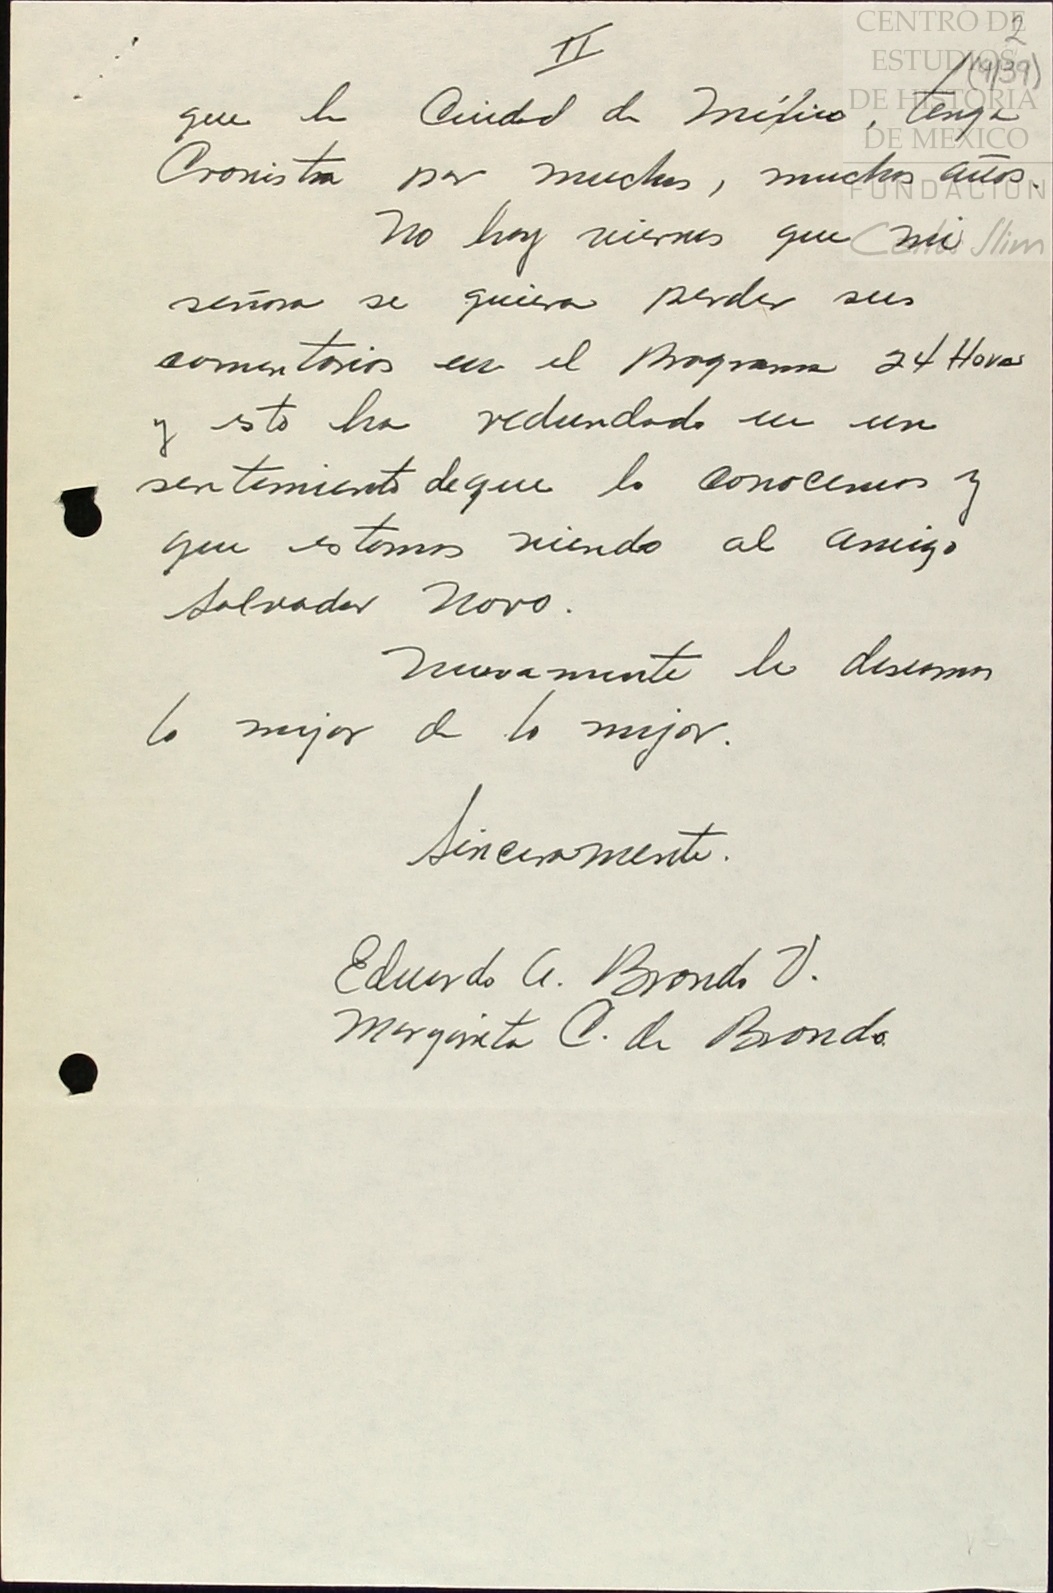 CENTRO DE
ESTUDIOS
DE HISTORIA
DE MEXICO
FUNDACION
Carlos Slim
2
(9/39)
II
que la Ciudad de México, tenga
Cronista por muchos, muchos años.
No hay viernes que mi
señora se quiera perder sus
comentarios en el Programa 24 Horas
y esto ha redundado en un
sentimiento de que lo conocemos y
que estamos viendo al amigo
Salvador Novo.
Nuevamente le deseamos
lo mejor de lo mejor.
Sinceramente.
Eduardo A. Brondo V.
Margarita C. de Brondo.